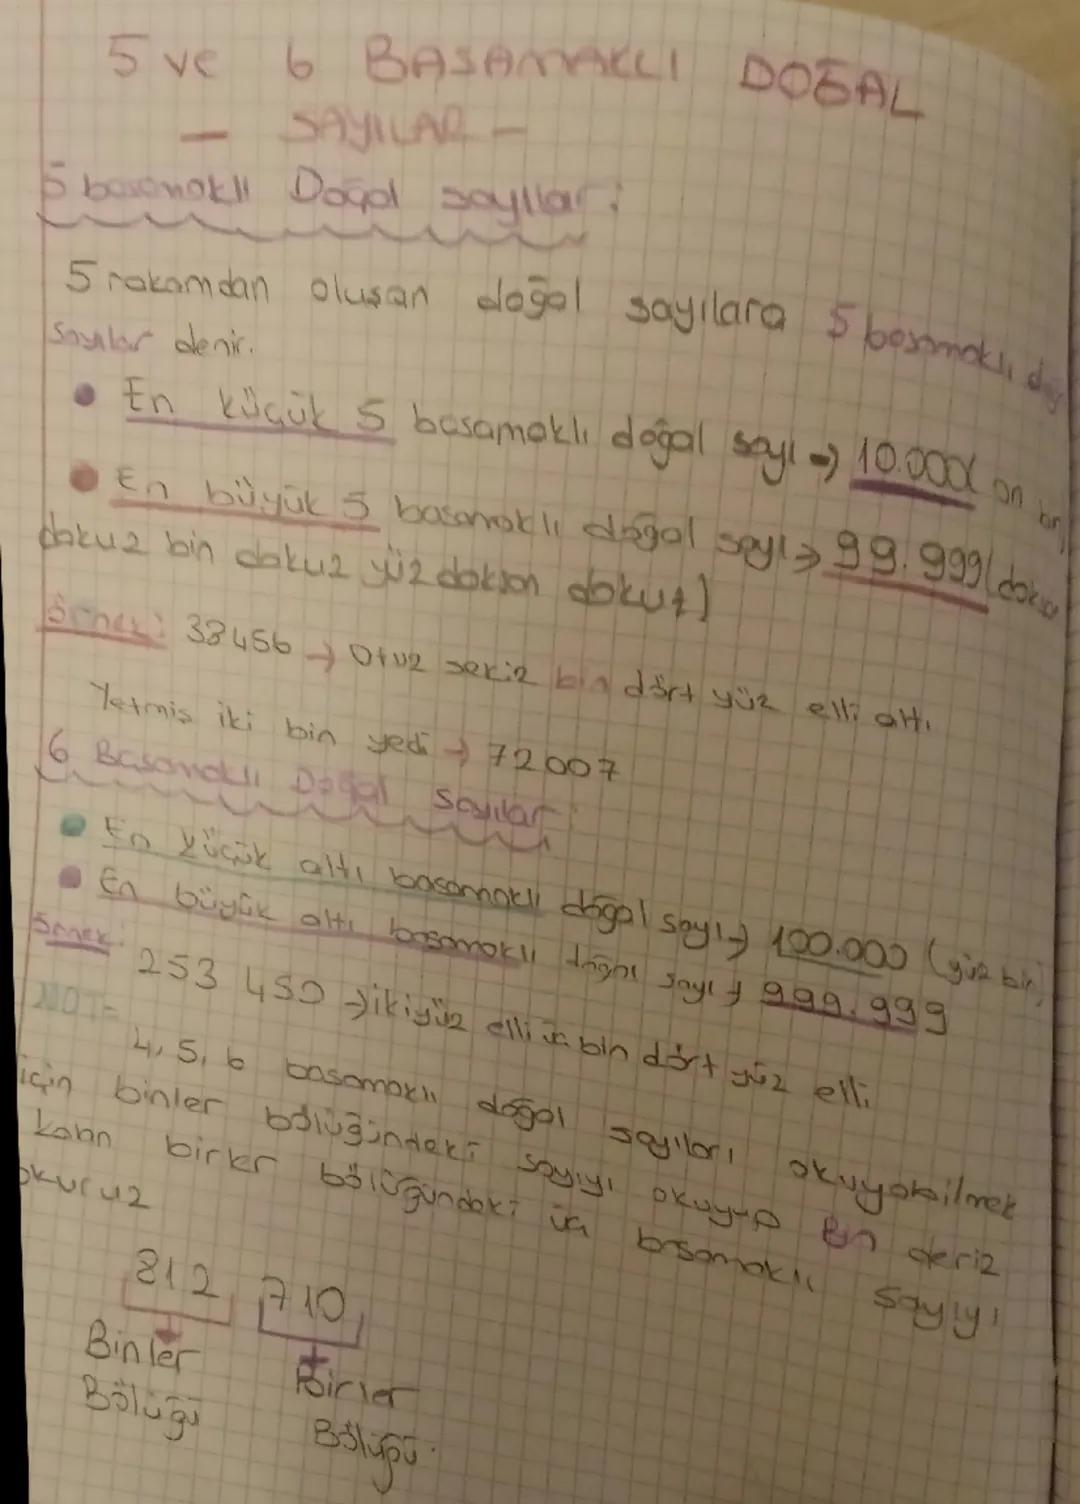 5 ve 6 BASAMAKLI DOĞAL
- SAYILAR -
5 basamaklı Doğal sayılar:
5 rakamdan oluşan doğal sayılara 5 basamaklı
sayılar denir.
• En küçük 5 basamaklı doğal sayı → 10.000( on bin)
• En büyük 5 basamaklı doğal sayı → 99.999(doksan
dokuz bin dokuz yüz doksan dokuz)
Örnek: 38456 → Otuz sekiz bin dört yüz elli altı
Yetmiş iki bin yedi → 72007
6 Basamaklı Doğal Sayılar:
• En küçük altı basamaklı doğal sayı → 100.000 (yüz bin)
• En büyük altı basamaklı doğal sayı → 999.999
Örnek: 253 450 → iki yüz elli üç bin dört yüz elli
NOT=
4, 5, 6 basamaklı doğal sayıları okuyabilmek
için binler bölüğündeki sayıyı okuyup bin deriz
kalan birler bölüğündeki üç basamaklı sayıyı
okuruz
812 710
Binler Birler
Bölüğü Bölüğü